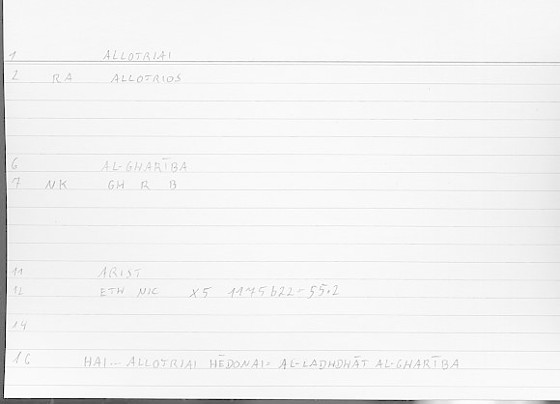 1 ALLOTRIAI
2 RA ALLOTRIOS
6 AL-GHARĪBA
7 NK GH R B
11 ARIST
12 ETH NIC X5 1175b22=§5.2
14
16 HAI... ALLOTRIAI HĒDONAI= AL-LADHDHĀT AL-GHARĪBA